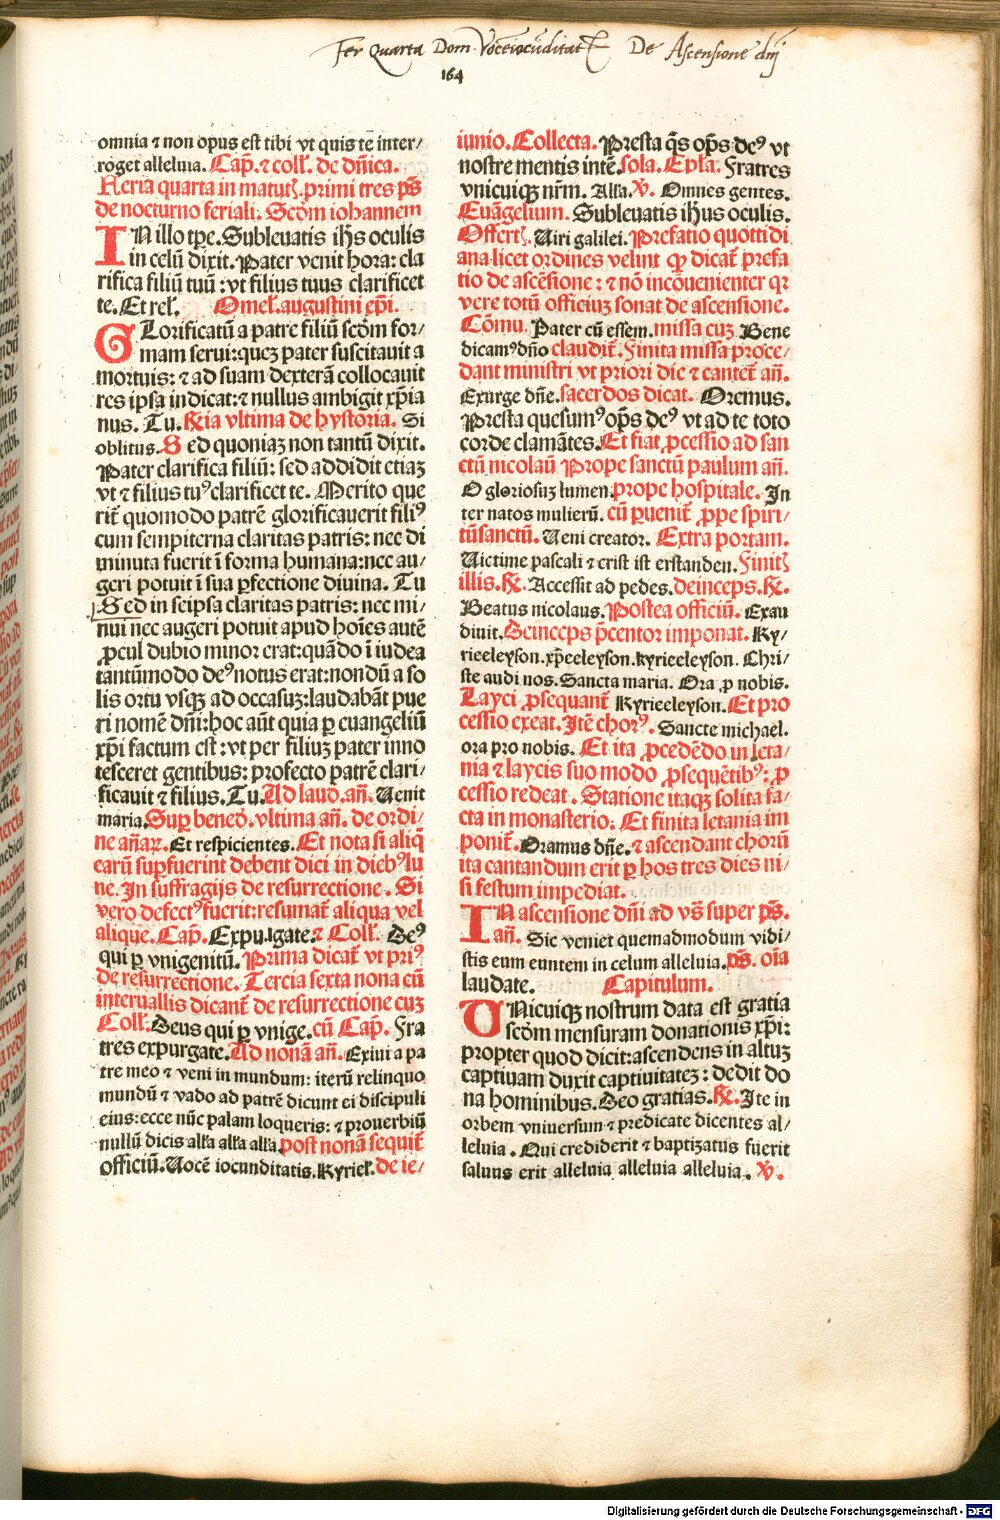 Fer Quarta Dom. Voce iocuditatꝭ De Ascensione dnj
164
omnia ⁊ non opus est tibi vt quis te inter/
roget alleluia. Cap̄. ⁊ coll̄. de dn̄ica.
Feria quarta in matutꝭ. primi tres ps̄
de nocturno feriali. Scd̄m iohannem
IN illo tp̄e. Subleuatis ih̄s oculis
in celū dixit. Pater venit hora: cla
rifica filiū tuū: vt filius tuus clarificet
te. Et rel̄. Omel̄. augustini ep̄i.
GLorificatū a patre filiū scd̄m for/
mam serui: quez pater suscitauit a
mortuis: ⁊ ad suam dexterā collocauit
res ipsa indicat: ⁊ nullus ambigit xp̄ia
nus. Tu. ℟ia vltima de hystoria. Si
oblitus. Sed quoniaz non tantū dixit.
Pater clarifica filiū: sed addidit etiaz
vt ⁊ filius tuꝰ clarificet te. Merito que
rit̄ quomodo patrē glorificauerit filiꝰ
cum sempiterna claritas patris: nec di
minuta fuerit ī forma humana: nec au/
geri potuit ī sua ꝑfectione diuina. Tu
Sed in seipsa claritas patris: nec mi/
nui nec augeri potuit apud hoīes autē
ꝓcul dubio minor erat: quādo ī iudea
tantūmodo deꝰ notus erat: nondū a so
lis ortu vsqꝫ ad occasuz: laudabāt pue
ri nomē dn̄i: hoc aūt quia ꝑ euangeliū
xp̄i factum est: vt per filiuz pater inno
tesceret gentibus: profecto patrē clari/
ficauit ⁊ filius. Tu. Ad laud̄. an̄. Uenit
maria. Suꝑ bened̄. vltima an̄. de ordi/
ne añaꝝ. Et respicientes. Et nota si aliq̄
earū suꝑfuerint debent dici in diebꝰ lu
ne. In suffragijs de resurrectione. Si
vero defectꝰ fuerit: resumat̄ aliqua vel
alique. Cap̄. Expurgate. ⁊ Coll̄. Deꝰ
qui ꝑ vnigenitū. Prima dicat̄ vt priꝰ
de resurrectione. Tercia sexta nona cū
interuallis dicant̄ de resurrectione cuz
Coll̄. Deus qui ꝑ vnige. cū Cap̄. Fra
tres expurgate. Ad nonā an̄. Exiui a pa
tre meo ⁊ veni in mundum: iterū relinquo
mundū ⁊ vado ad patrē dicunt ei discipuli
eius: ecce nūc palam loqueris: ⁊ prouerbiū
nullū dicis all̄a all̄a all̄a. post nonā sequit̄
officiū. Uocē iocunditatis. Kyriel̄. de ie/
iunio. Collecta. Presta q̄s op̄s deꝰ vt
nostre mentis intē. sola. Epl̄a. Fratres
vnicuiqꝫ nr̄m. All̄a. ℣. Omnes gentes.
Euāgelium. Subleuatis ih̄us oculis.
Offertꝭ. Uiri galilei. Prefatio quottidi
ana licet ordines velint qꝫ dicat̄ prefa
tio de ascēsione: ⁊ nō incōuenienter qꝛ
vere totū officiuz sonat de ascensione.
Cōmu. Pater cū essem. missa cuz Bene
dicamꝰ dn̄o claudit̄. Finita missa proce/
dant ministri vt priori die ⁊ cantet̄ an̄.
Exurge dn̄e. sacerdos dicat. Oremus.
Presta quesumꝰ op̄s deꝰ vt ad te toto
corde clamātes. Et fiat ꝓcessio ad san
ctū nicolaū Prope sanctū paulum an̄.
O gloriosuz lumen. prope hospitale. In
ter natos mulierū. cū ꝑuenit̄ ꝓpe spiri/
tūsanctū. Ueni creator. Extra portam.
Uictime pascali ⁊ crist ist erstanden. Finitꝭ
illis. ℟. Accessit ad pedes. deinceps. ℟.
Beatus nicolaus. Postea officiū. Exau
diuit. Deinceps p̄centor imponat. Ky/
rieeleyson. xp̄eeleyson. kyrieeleyson. Chri/
ste audi nos. Sancta maria. Ora ꝓ nobis.
Layci ꝓsequant̄ Kyrieeleyson. Et pro
cessio exeat. Itē chorꝰ. Sancte michael.
ora pro nobis. Et ita ꝓcedēdo in leta/
nia ⁊ laycis suo modo ꝓsequētibꝰ: ꝓ
cessio redeat. Statione itaqꝫ solita fa/
cta in monasterio. Et finita letania im
ponit̄. Oramus dn̄e. ⁊ ascendant chorū
ita cantandum erit ꝑ hos tres dies ni/
si festum impediat.
IN ascensione dn̄i ad vs̄ super ps̄.
an̄. Sic veniet quemadmodum vidi/
stis eum euntem in celum alleluia. ps̄. oīa
laudate. Capitulum.
UNicuiqꝫ nostrum data est gratia
scd̄m mensuram donationis xp̄i:
propter quod dicit: ascendens in altuz
captiuam duxit captiuitatez: dedit do
na hominibus. Deo gratias. ℟. Ite in
orbem vniuersum ⁊ predicate dicentes al/
leluia. Qui crediderit ⁊ baptizatus fuerit
saluus erit alleluia alleluia alleluia. ℣.
Digitalisierung gefördert durch die Deutsche Forschungsgemeinschaft - DFG